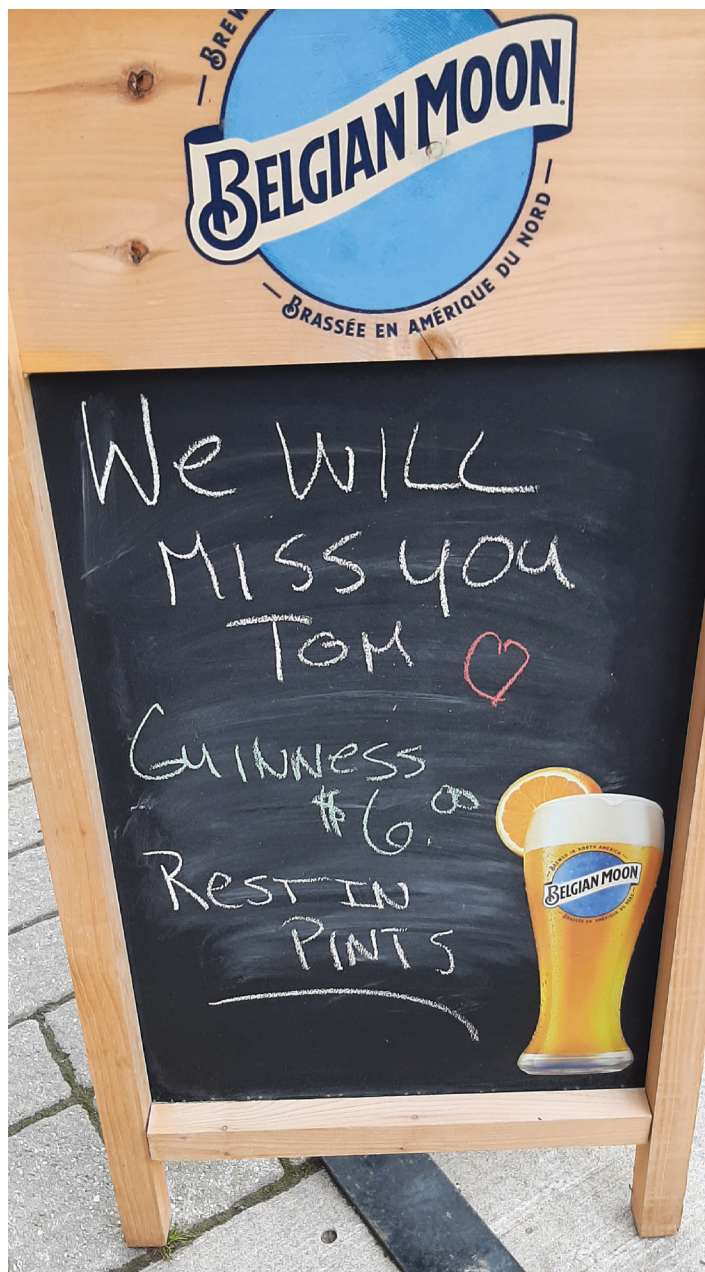 BREW
BELGIAN MOON
BRASSÉE EN AMÉRIQUE DU NORD
We WILL
MISS YOU
TOM
GUINNESS
$6.00
REST IN
PINTS
BREWED IN NORTH AMERICA
BELGIAN MOON
BRASSÉE EN AMÉRIQUE DU NORD